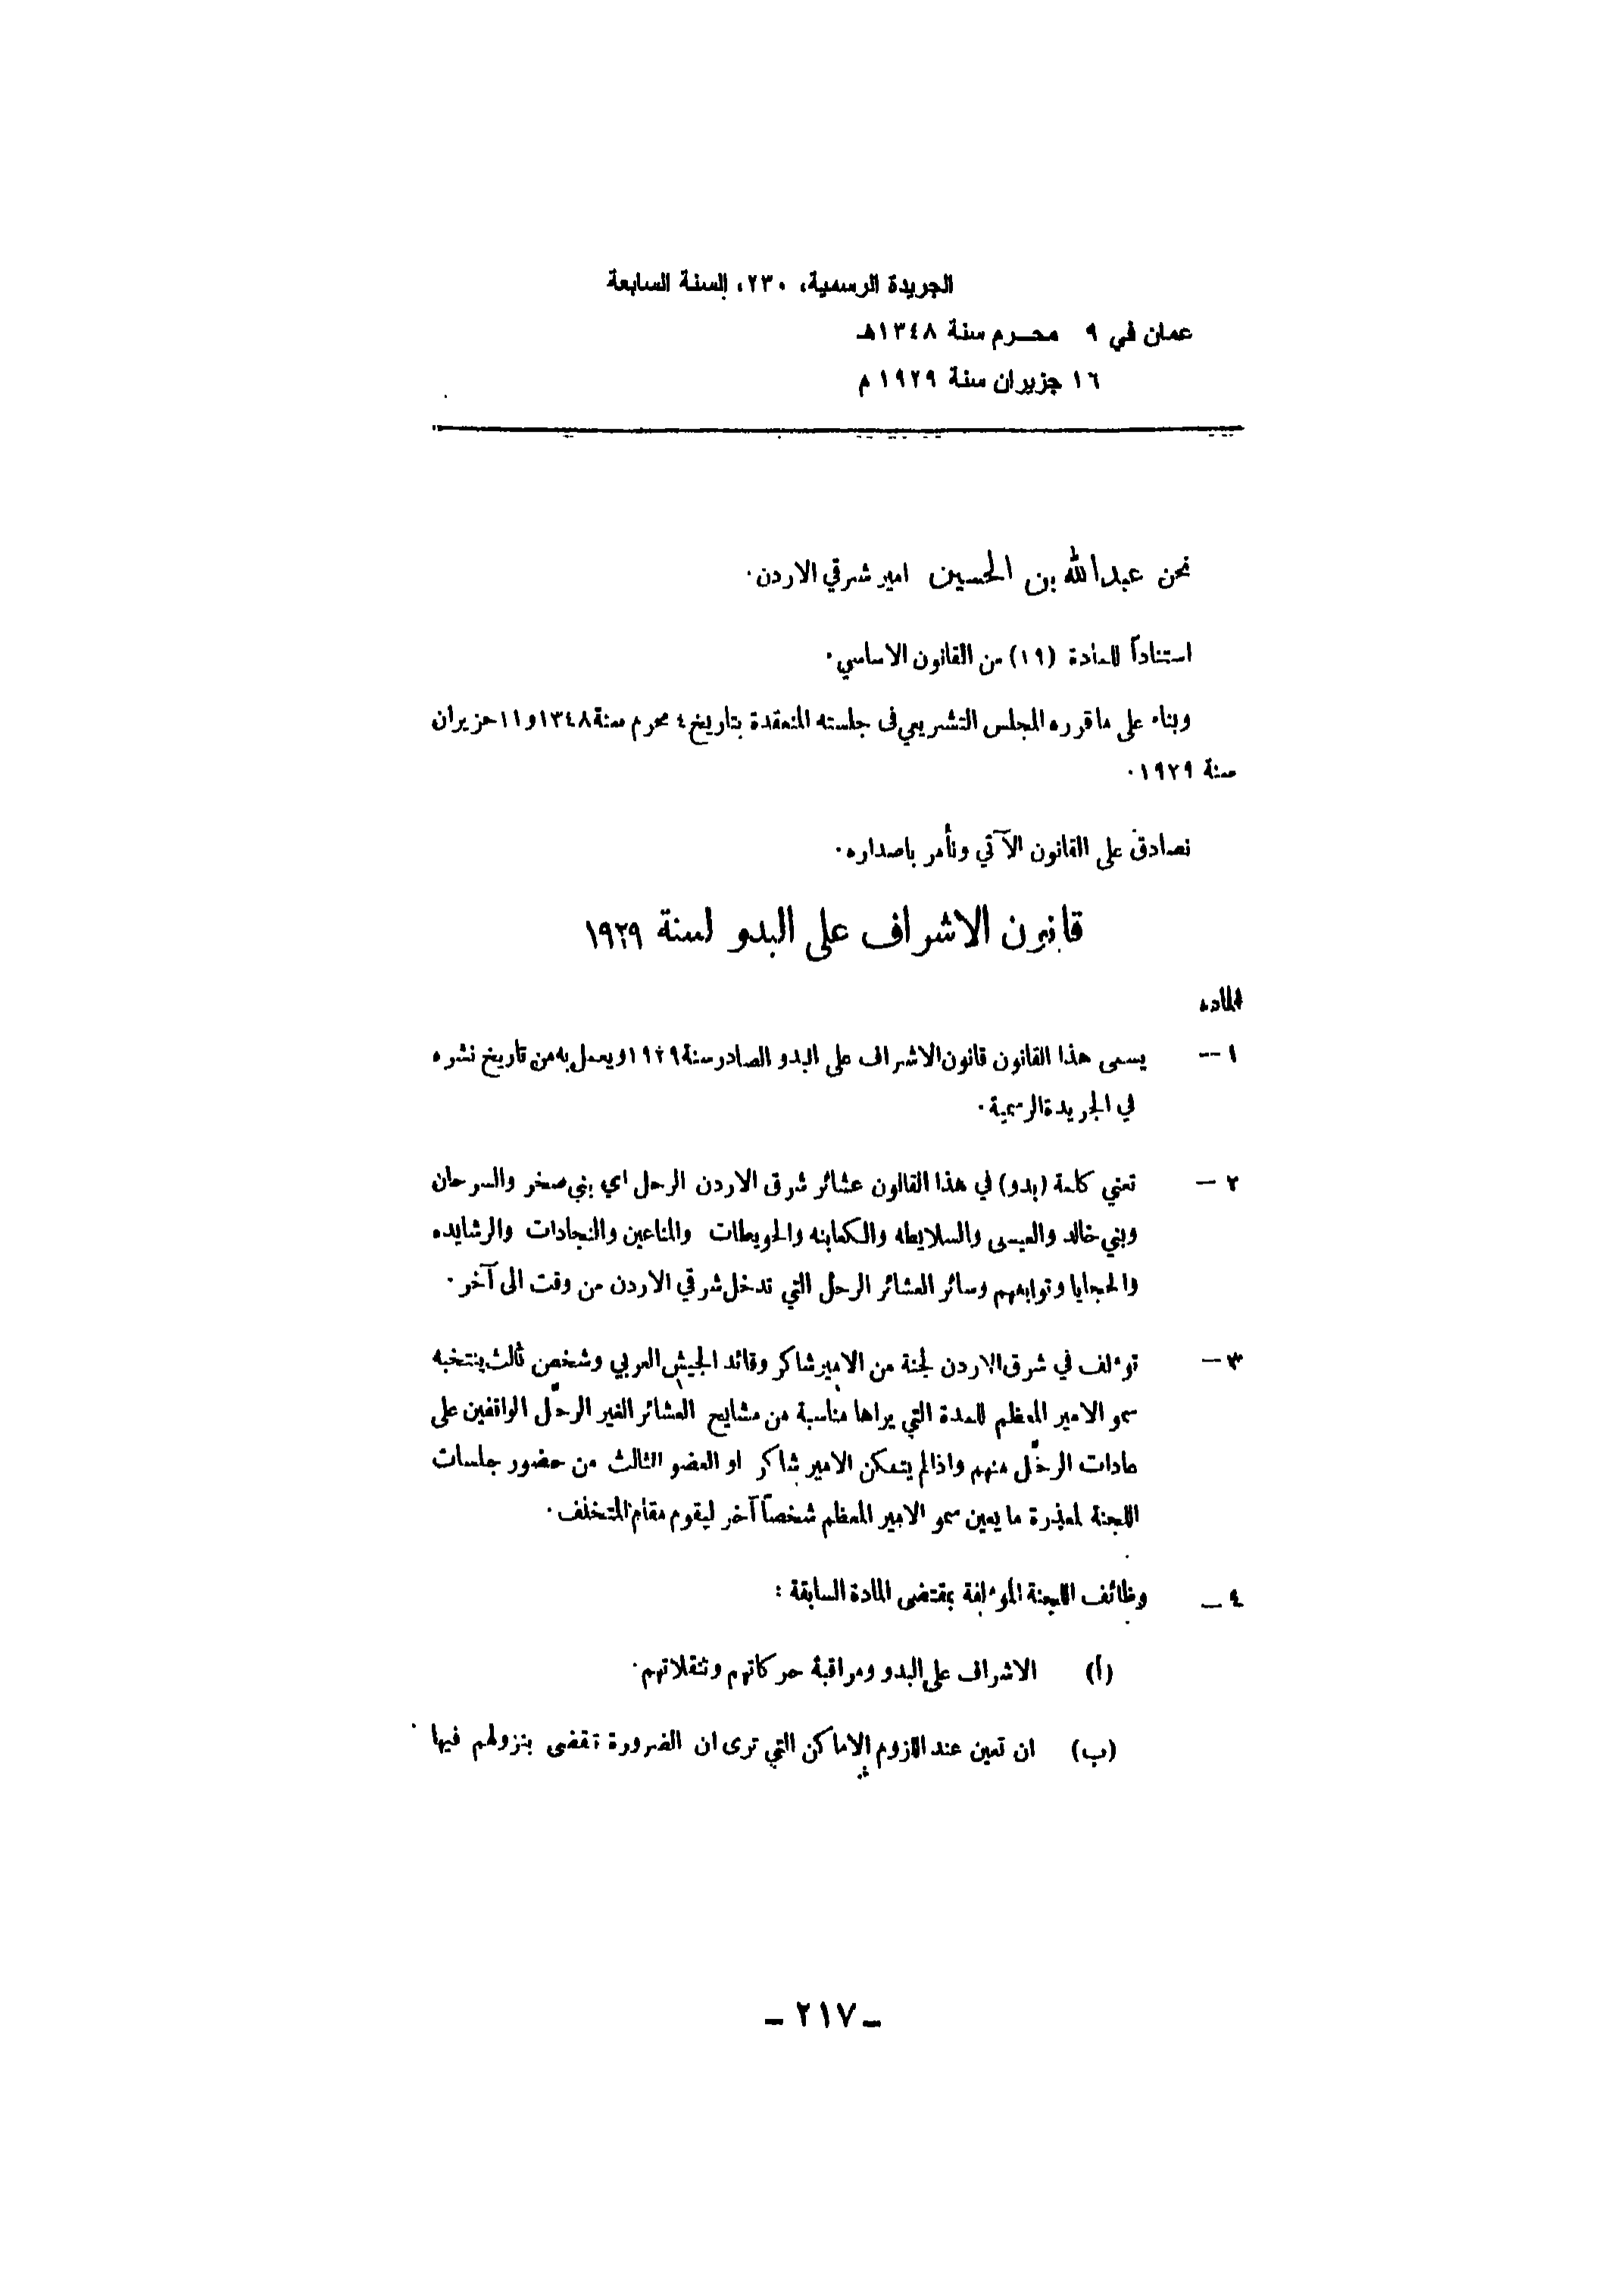 الجريدة الرسمية، ٢٣٠، السنة السابعة
عمان في ٩ محرم سنة ١٣٤٨هـ
١٦ حزيران سنة ١٩٢٩ م
نحن عبدالله بن الحسين امير شرقي الاردن.
استناداً للمادة (١٩) من القانون الاساسي.
وبناء على ماقرره المجلس التشريعي في جلسته المنعقدة بتاريخ ٤ محرم سنة ١٣٤٨ و١١ حزيران
سنة ١٩٢٩.
نصادق على القانون الآتي ونأمر باصداره.
قانون الاشراف على البدو لسنة ١٩٢٩
المادة
١ -- يسمى هذا القانون قانون الاشراف على البدو الصادر سنة ١٩٢٩ ويعمل به من تاريخ نشره
في الجريدة الرسمية.
٢ — تعني كلمة (بدو) في هذا القانون عشائر شرق الاردن الرحل اي بني صخر والسرحان
وبني خالد والعيسى والسلايطه والكعابنه والحويطات والمناعين والنجادات والرشايده
والحجايا وتوابعهم وسائر العشائر الرحل التي تدخل شرقي الاردن من وقت الى آخر.
٣ — تؤلف في شرق الاردن لجنة من الامير شاكر وقائد الجيش العربي وشخص ثالث ينتخبه
سمو الامير المعظم للمدة التي يراها مناسبة من مشايح العشائر الغير الرحّل الواقفين على
عادات الرحّل منهم واذا لم يتمكن الامير شاكر او العضو الثالث من حضور جلسات
اللجنة لمعذرة ما يعين سمو الامير المعظم شخصاً آخر ليقوم مقام المتخلف.
٤ — وظائف اللجنة المؤلفة بمقتضى المادة السابقة :
(أ) الاشراف على البدو ومراقبة حركاتهم وتنقلاتهم.
(ب) ان تعين عند اللزوم الاماكن التي ترى ان الضرورة تقضى بنزولهم فيها
- ٢١٧ -